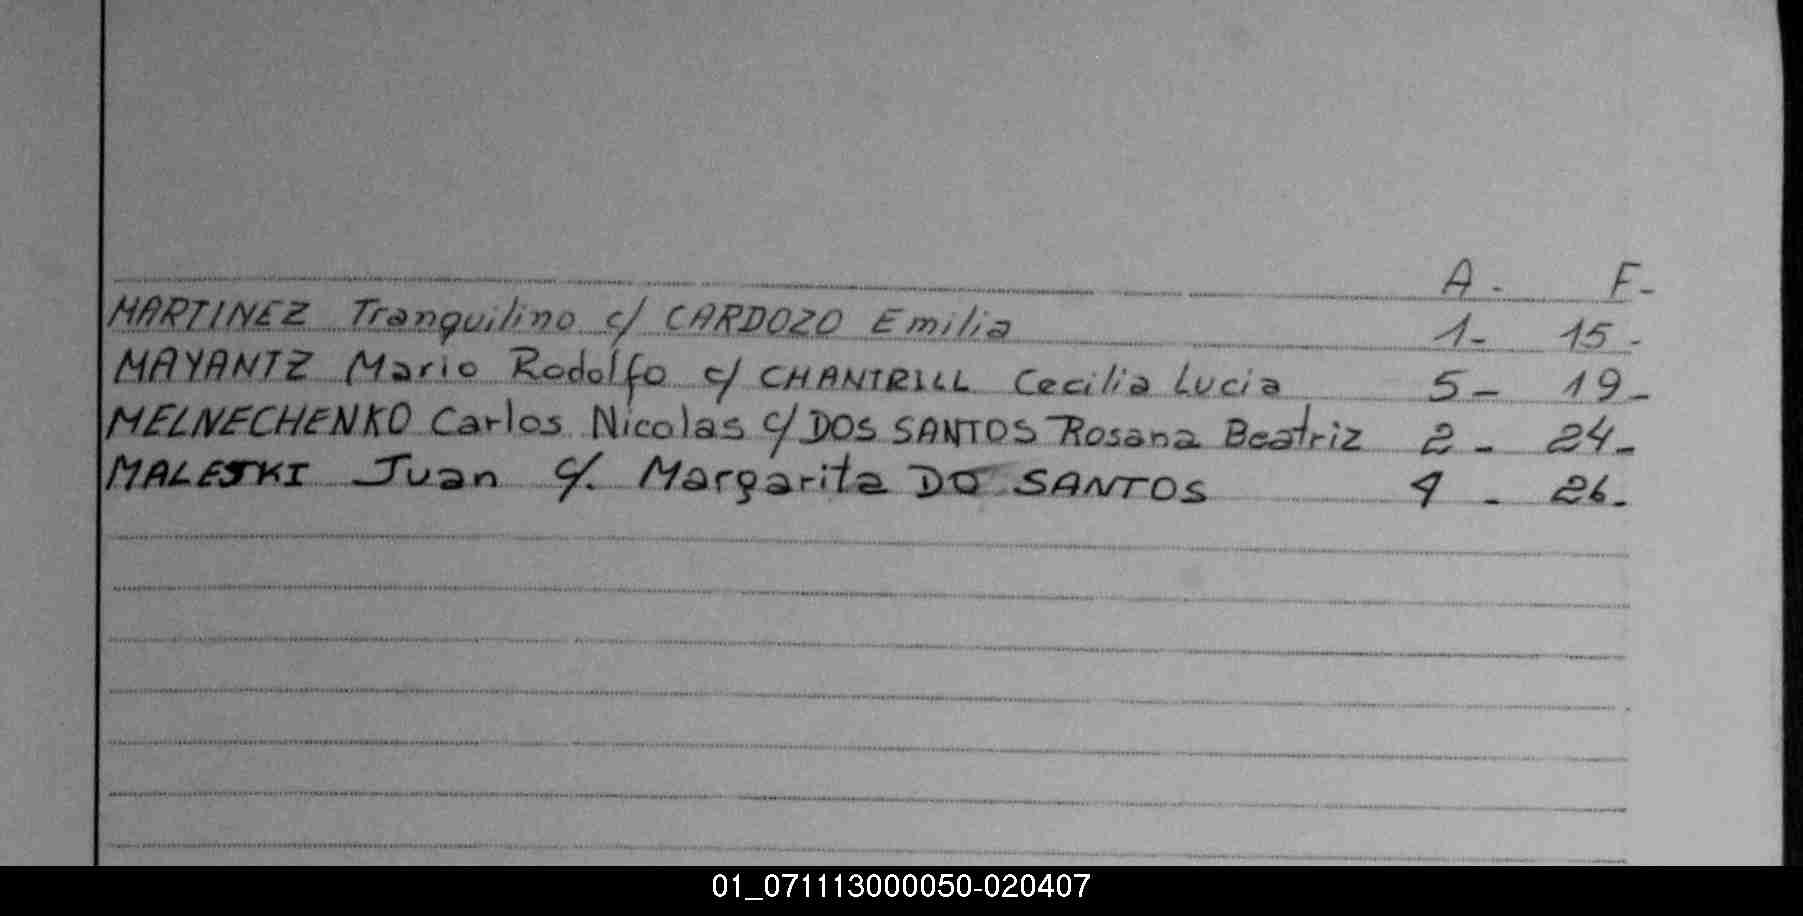 A - F -
MARTINEZ Tranquilino c/ CARDOZO Emilia 1 - 15 -
MAYANTZ Mario Rodolfo c/ CHANTRILL Cecilia Lucia 5 - 19 -
MELNECHENKO Carlos Nicolas c/ DOS SANTOS Rosana Beatriz 2 - 24 -
MALESKI Juan c/. Margarita DO SANTOS - 26.
01_071113000050-020407